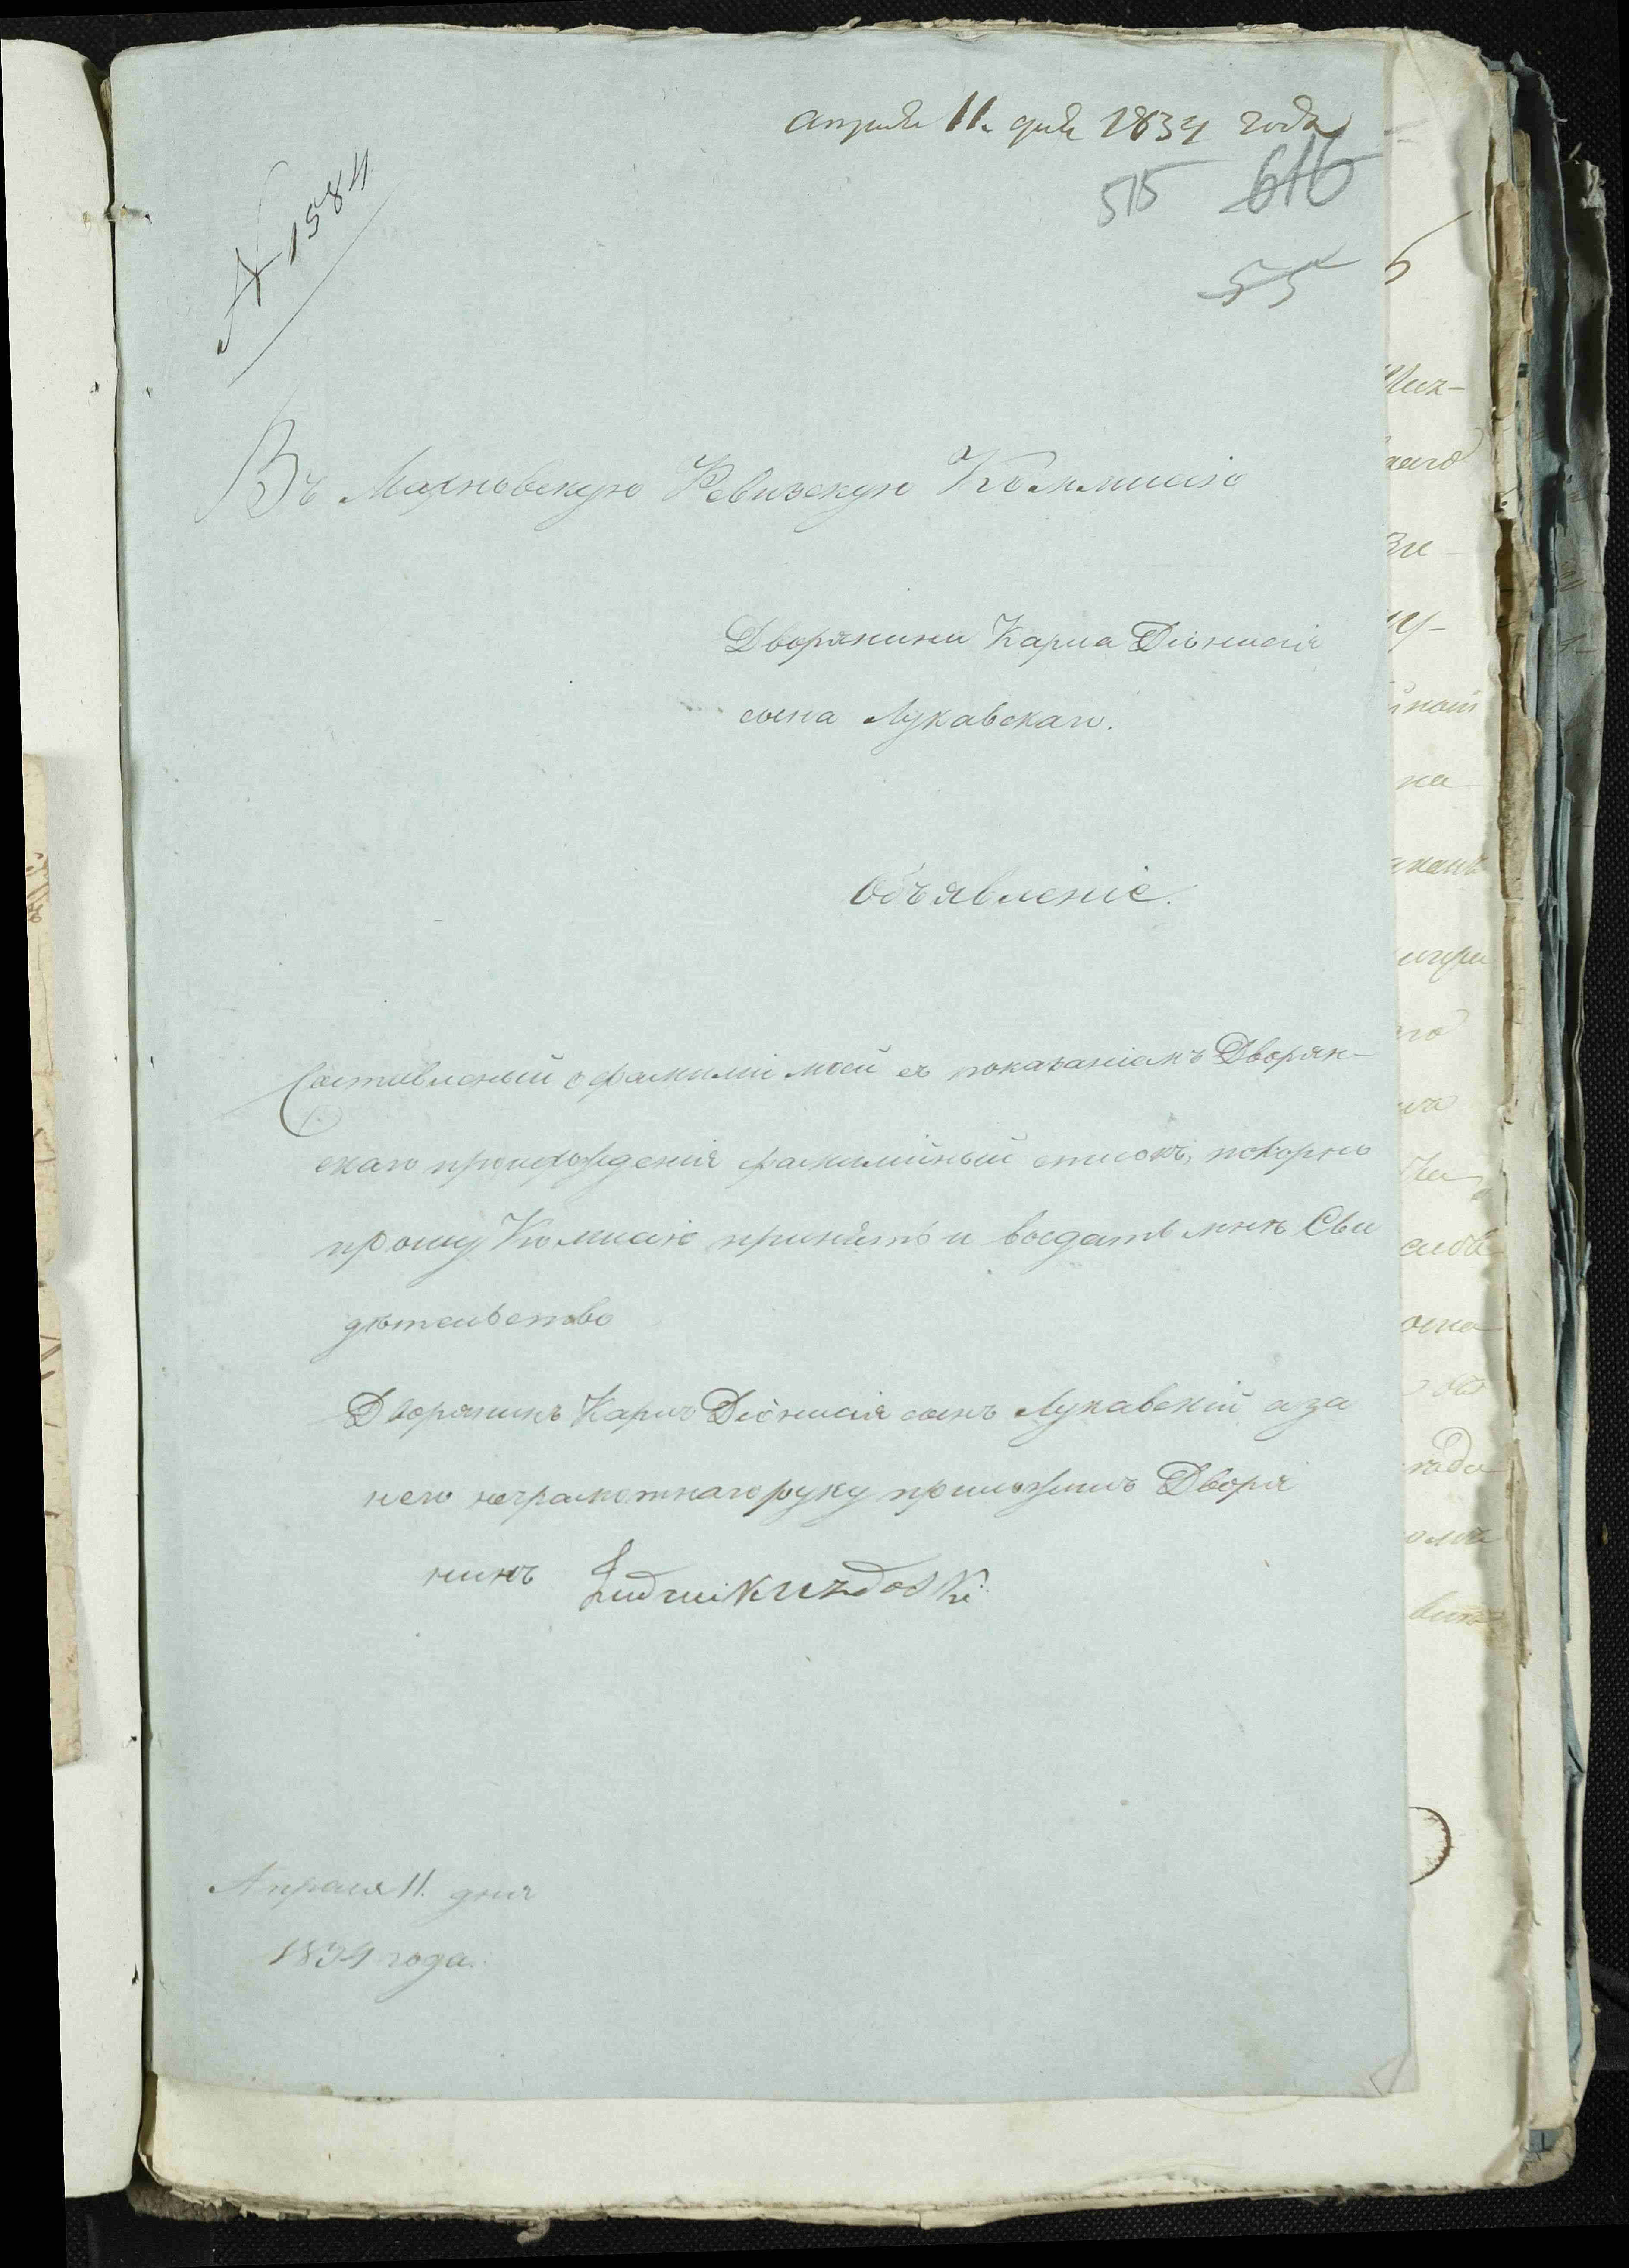 апреля 11. дня 1834 года
№ 1584
515 616
55
Въ Махновскую Ревизскую Коммисію
Дворянина Карла Діонисія
сына Лукавскаго.
Объявленіе.
Составленый о фамиліи моей съ показаніемъ Дворян-
скаго происхожденія фамилійный списокъ, покорно
прошу Комисію принять и выдать мнѣ Сви
дѣтельство
Дворянинъ Карлъ Діонисія сынъ Лукавскій а за
него неграмотнаго руку приложилъ Дворя
нинъ
Апреля 11. дня
1834 года.